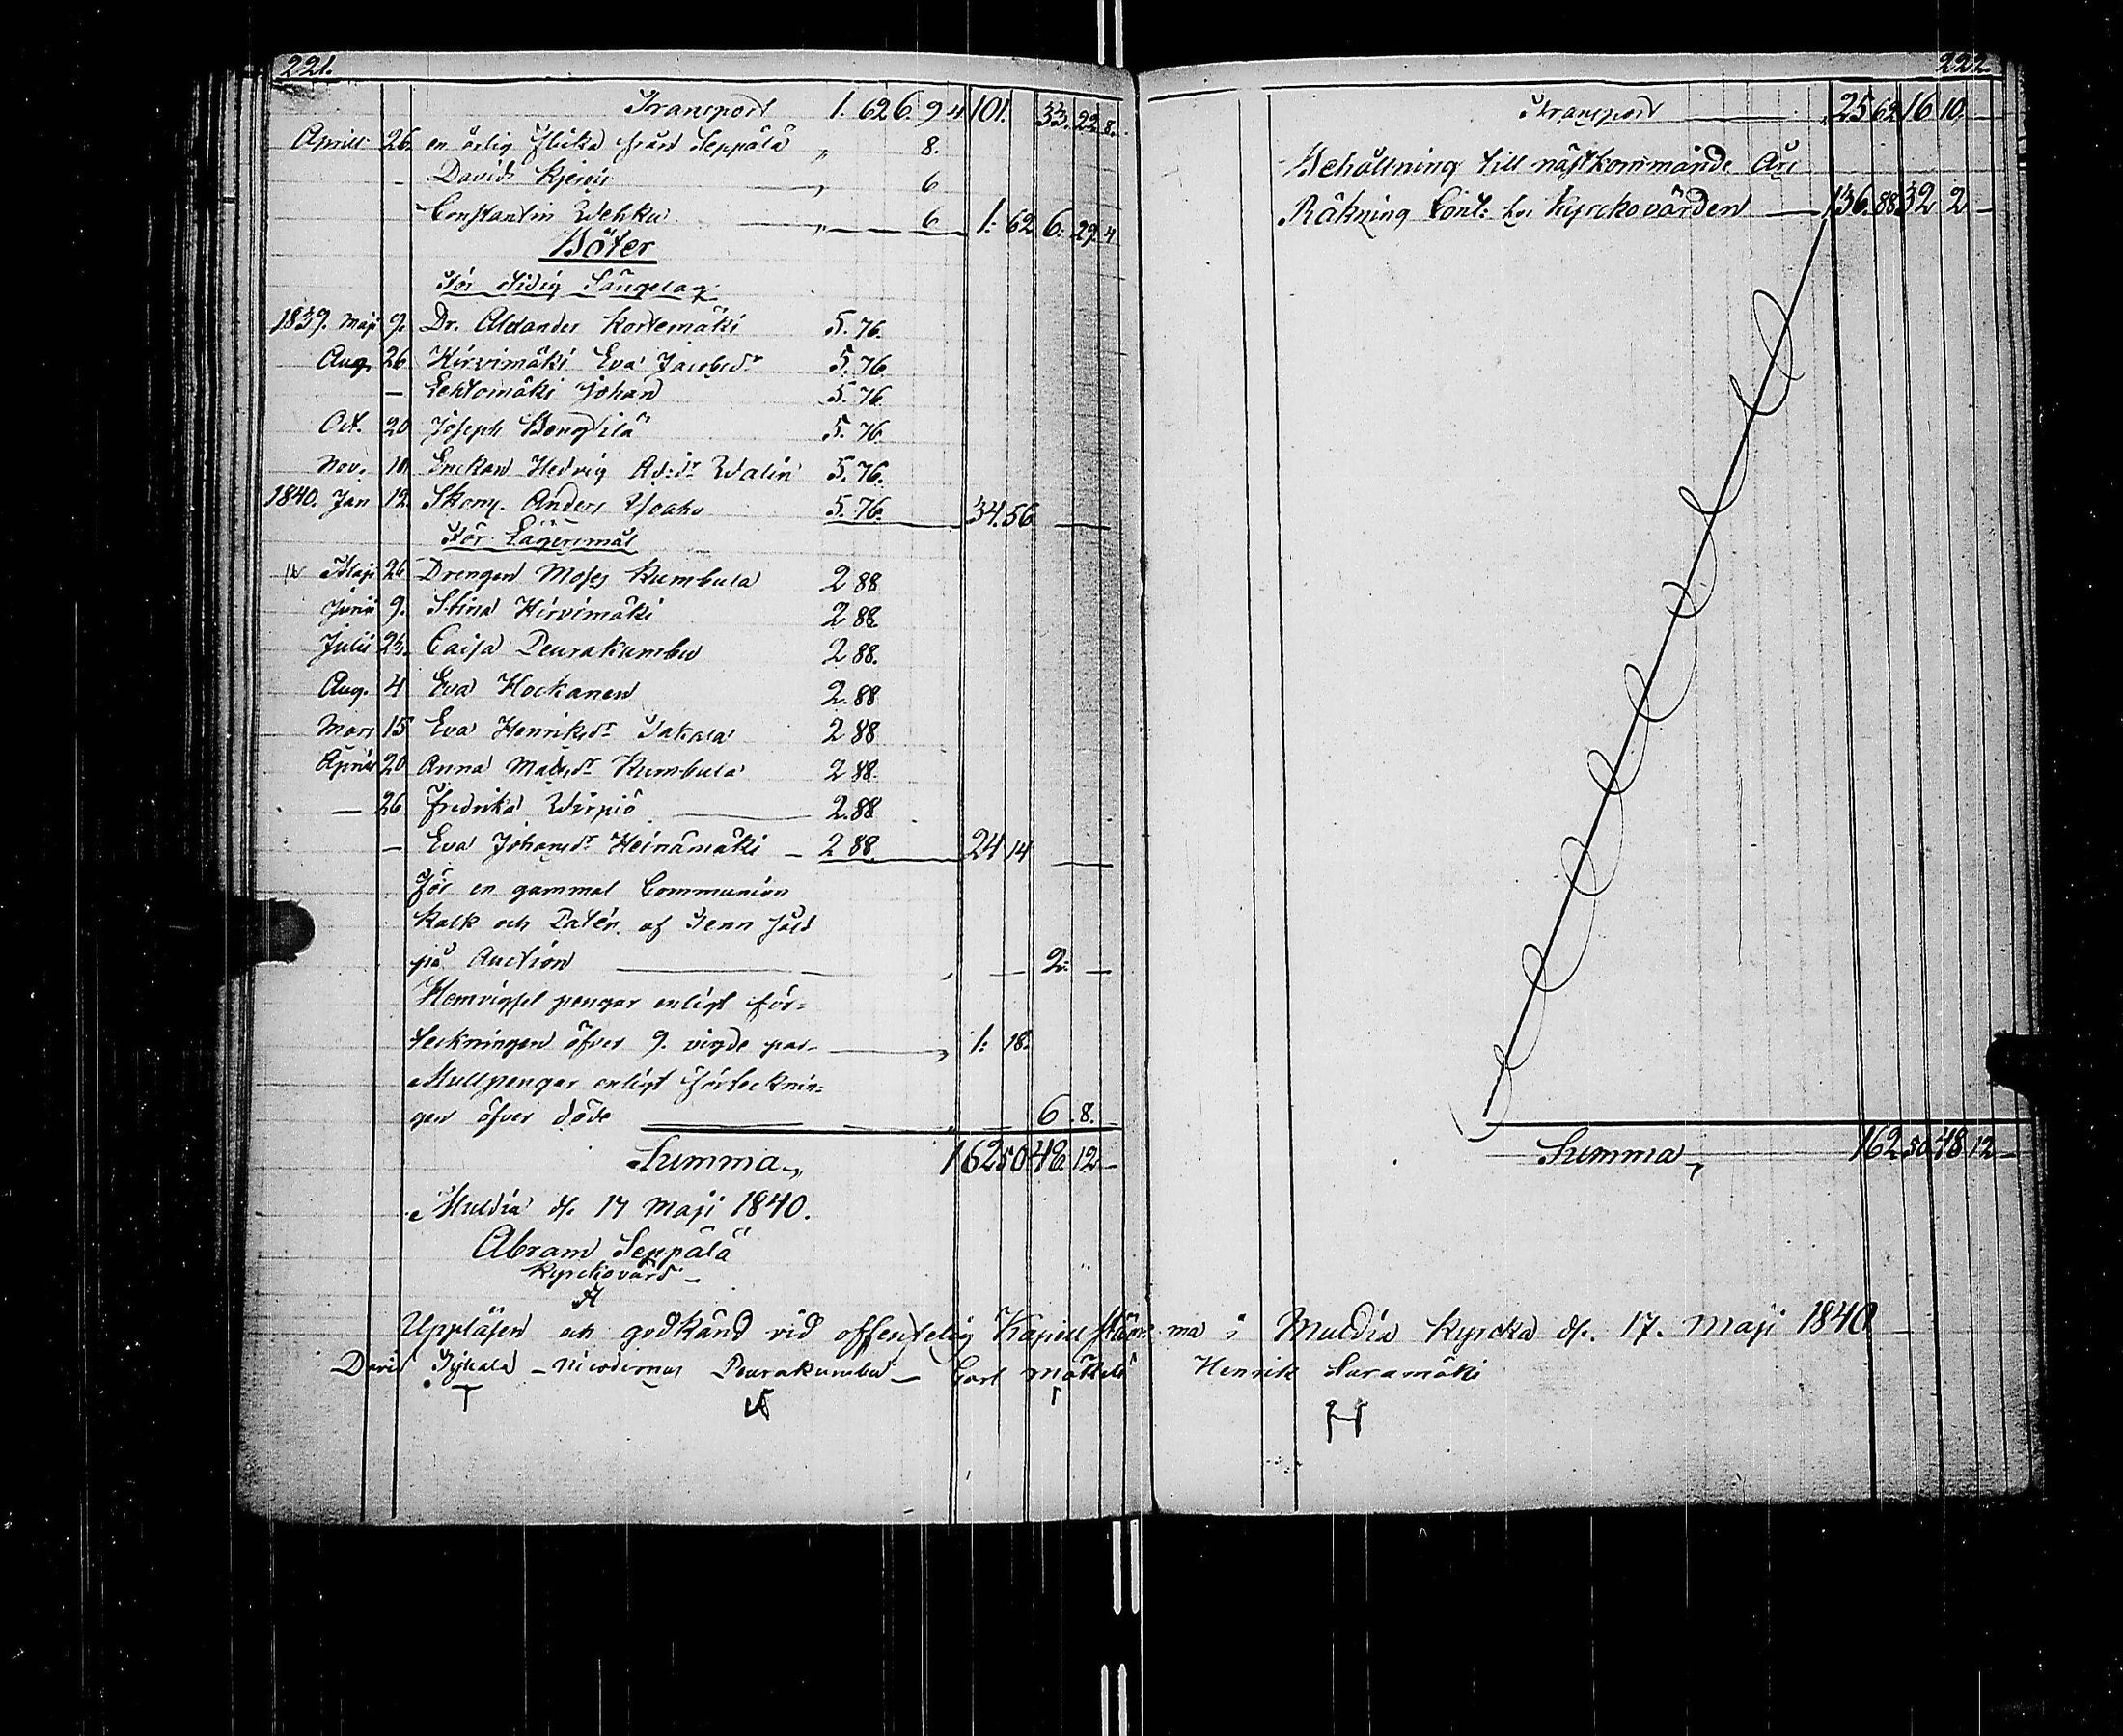 221.
Transport 1. 62 6. 9 4 101. 33. 22 8.
Aprill 26. en ärlig flicka från Seppälä „ 8.
- David Kjeroi „ 6
Constantin Wehku „ 6 1: 62 6: 29 4
Böter
För tidig Sängelag
1839. Maji 9. Dr. Alexander Kortemäki 5. 76.
Aug. 26 Hirvimäki Eva Jacobsdr 5. 76.
- Lehtomäki Johan 5. 76.
Oct. 20 Joseph Bengtilä 5. 76.
Nov. 10. Enckan Hedvig Ad:dr Walin 5. 76.
1840. Jan 12. Skom. Anders 5. 76. 34. 56
För Lägersmål
Maji 26 Drengen Moses Kumbula 2 88
Junii 9. Stina Hirvimäki 2 88.
Julii 25. Caisa Peurakumbu 2 88.
Aug. 4 Eva Hockanen 2. 88
Mars 15 Eva Henriksdr Takala 2 88
Aprill 20 Anna Matsdr Kumbula 2 88.
— 26 Fredrika Wirpiö 2. 88
- Eva Johansdr Heinämäki - 2 88. 24 14
För en gammal Communion
Kalk och Patén af Tenn såld
på Auction 2: —
Hemvigsel pengar enligt för=
teckningen öfver 9. vigde par 1: 18.
Mullpengar enligt förtecknin=
gen öfver döde 6. 8.
Summa 162 50 48 12 -
Muldia d. 17 Maji 1840.
Abram Seppälä
Kyrckovärd
Uppläsen och godkänd vid offentelig Kapell stäm
David Tykala - Nicodemus Peurakumbu - Carl Mäkelä
222.
Transport 25 62 16 10 -
Behållning till nästkommande Års
Räkning Cont: hos Kyrckovärden 136. 88 32 2 -
Summa 162 50 48 12 -
ma i Muldia Kyrcka d. 17. Maji 1840
Henrik Saramäki
H